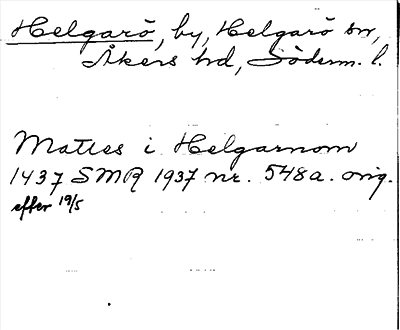 Helgarö, by, Helgarö sn,
Åkers hd, Söderm. l.
Mattes i Helgarnom
1437 SMR 1937 nr. 548a. orig.
efter 19/5